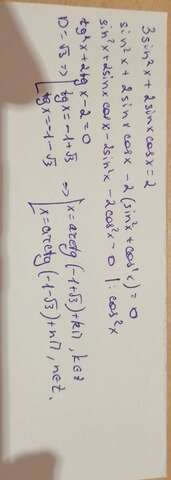 3sin²x + 2sinx cosx = 2
sin²x + 2sinx cosx - 2(sin²x + cos²x) = 0
sin²x + 2sinx cosx - 2sin²x - 2cos²x = 0 | : cos²x
tg²x + 2tgx - 2 = 0
D = √3 => [ tgx = -1+√3 => [ x = arctg(-1+√3) + kπ, k∈z
tgx = -1-√3 x = arctg(-1-√3) + nπ, n∈z.